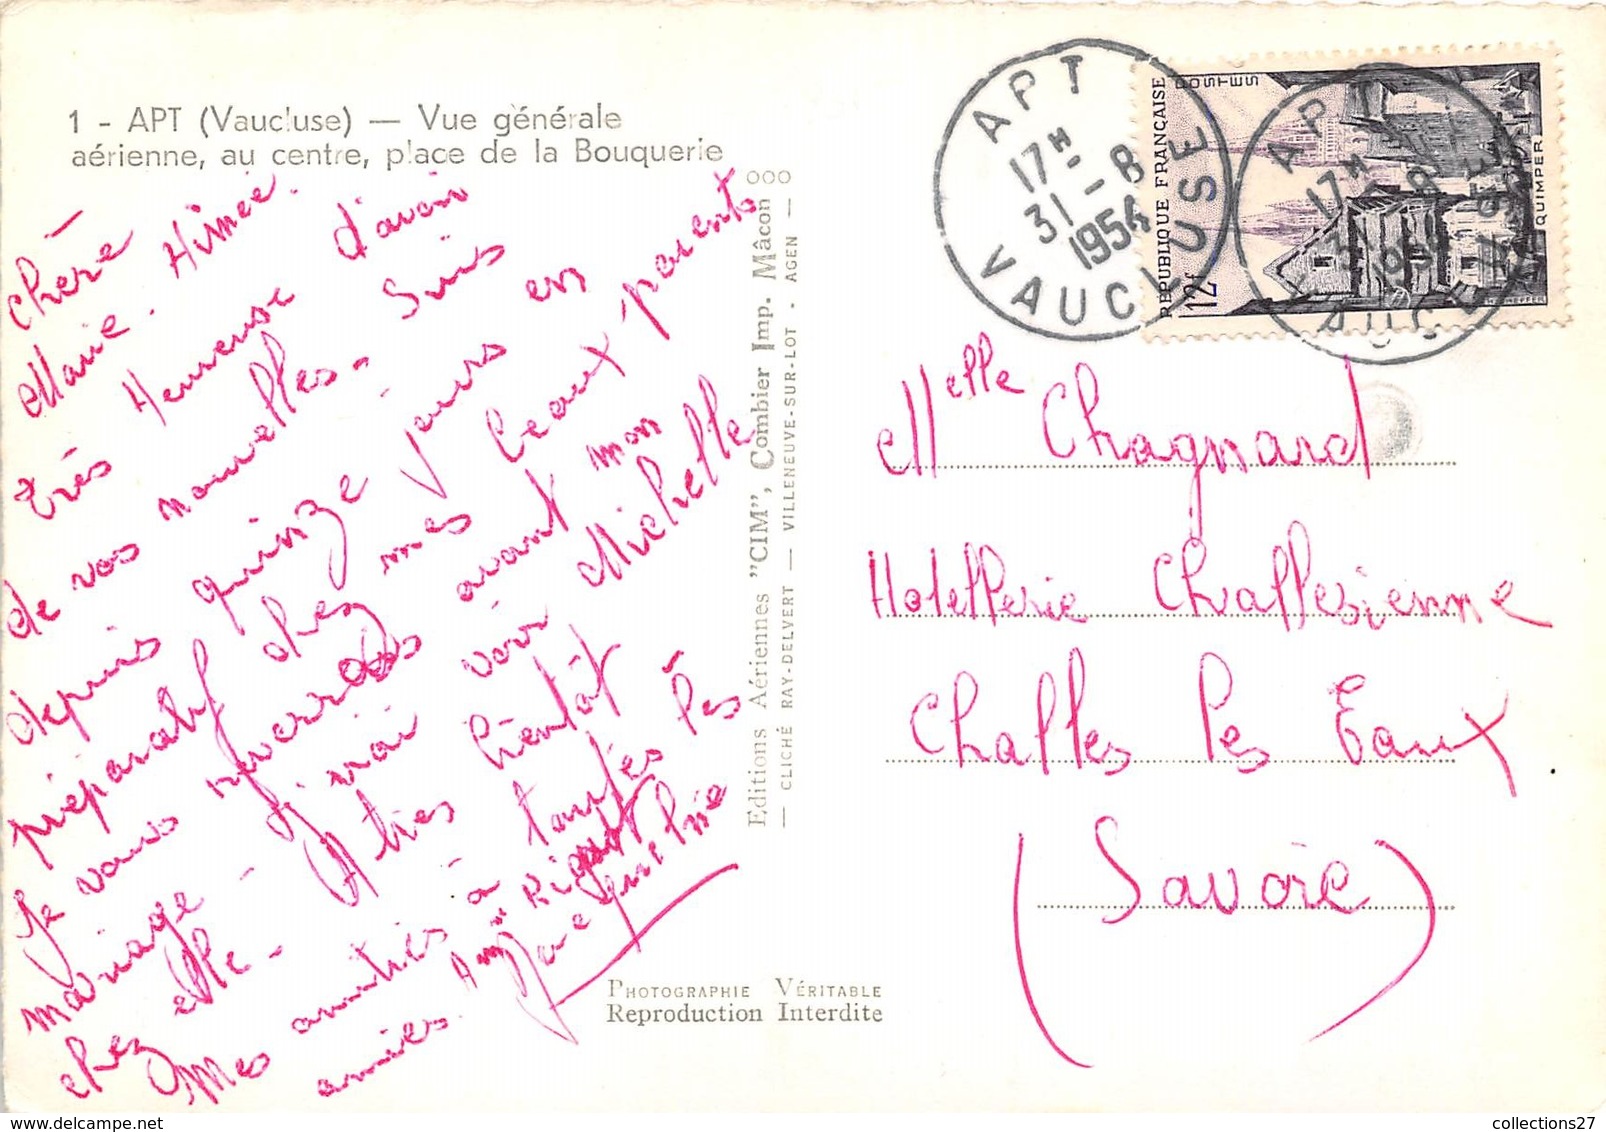 1 - APT (Vaucluse) — Vue générale
aérienne, au centre, place de la Bouquerie
Chère
Marie. Aimée.
très Heureuse d'avoir
de vos nouvelles - Suis
depuis quinze jours en
préparatif chez mes beaux parents
Je vous reverrais avant mon
mariage - J'irai voir Michelle
chez elle - A très bientôt
Mes amitiés à toutes les
amies.
Jacqueline
Editions Aériennes "CIM", Combier Imp. Mâcon
— CLICHÉ RAY-DELVERT — VILLENEUVE-SUR-LOT - AGEN —
PHOTOGRAPHIE VÉRITABLE
Reproduction Interdite
APT
17H
31-8
1954
VAUCLUSE
REPUBLIQUE FRANÇAISE
POSTES
12f
QUIMPER
APT
17H
Melle Chagnard
Hotellerie Challesienne
Challes les Eaux
(Savoie)
collections27